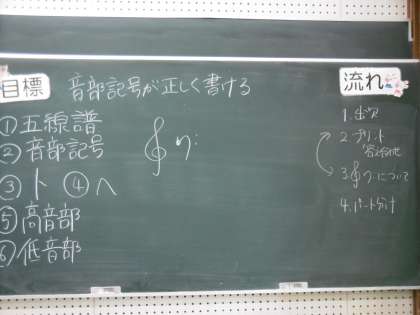 目標
音部記号が正しく書ける
①五線譜
②音部記号
③ト ④ヘ
⑤高音部
⑥低音部
流れ
1.出欠
2.プリント
答え合わせ
3.𝄞 𝄢について
4.パート分け